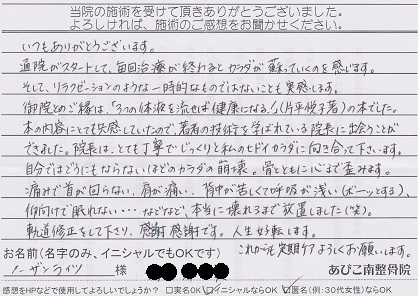 当院の施術を受けて頂きありがとうございました。
よろしければ、施術のご感想をお聞かせください。
いつもありがとうございます。
通院がスタートして、毎回治療が終わるとカラダが蘇っていくのを感じます。
そして、リラクゼーションのような一時的なものではないことも実感します。
御院とのご縁は、「3つの体液を流せば健康になる!」(片平悦子著)の本でした。
本の内容にとても共感していたので、著者の技術を学ばれている院長に出会うことが
できました。院長は、とても丁寧でじっくりと私のヒドイカラダに向き合って下さいます。
自分ではどうにもならないほどのカラダの崩壊。骨とともに心まで歪みます。
痛みで首が回らない、肩が痛い、背中が苦しくて呼吸が浅い(ボーッとする)、
仰向けで眠れない…などなど、本当に壊れるまで放置しました(笑)。
軌道修正をして下さり、感謝感謝です。人生好転します。
これからも定期ケアよろしくお願いします。
お名前(名字のみ、イニシャルでもOKです)
ノーザンライツ 様
あびこ南整骨院
感想をHPなどで使用してよろしいでしょうか? □実名OK □イニシャルならOK ☑匿名(例:30代女性)ならOK